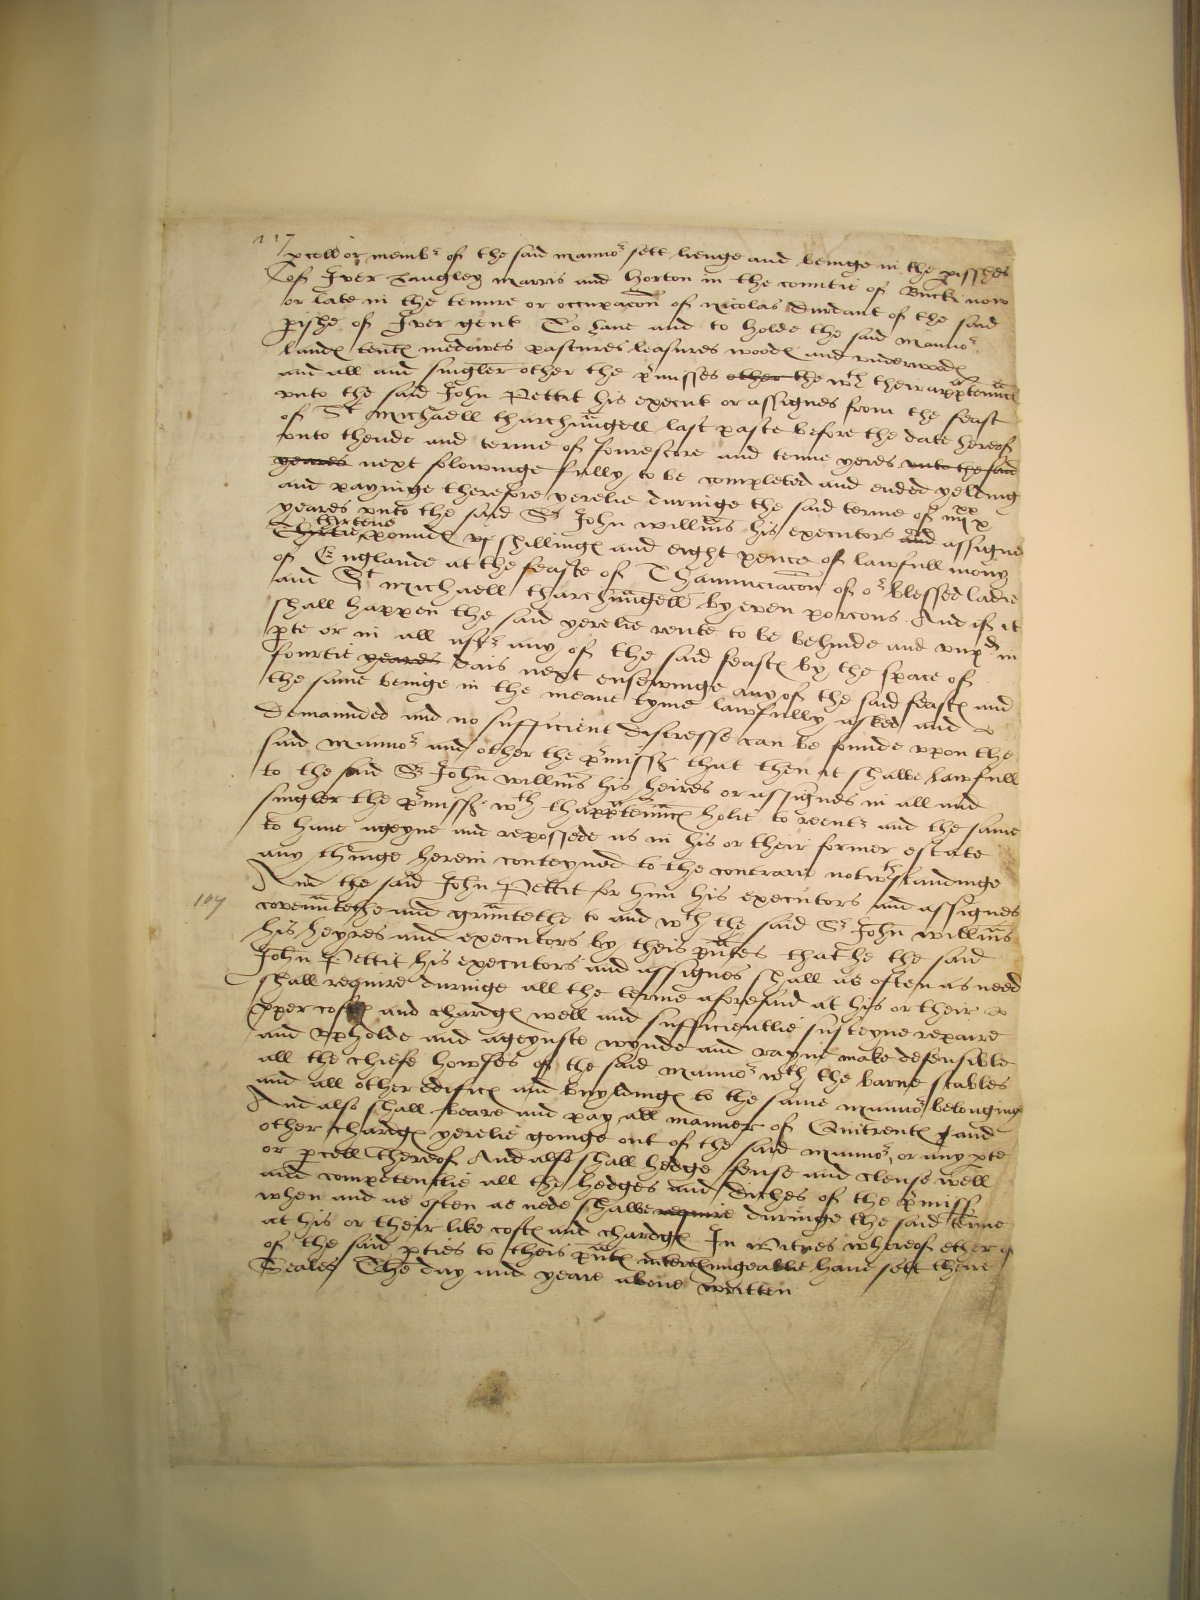 117
pcell or membr of the said mannor sett lienge and beinge in the pisshes
of Iver Langley Marris and Horton in the countie of Buck now
or late in the tenure or occupacon of Nicolas Durdant of the said
pishe of Iver gent To haue and to holde the said mannor
landes tentes medowes pastures leasures woodes and vnderwoodes
and all and singler other the pmisses other the wth their apptennces
vnto the said John Pettit his execut or assignes from the feast
of St Michaell tharchangell last paste before the date hereof
vnto thende and terme of fourescore and tenne yeres vnto the said
yeares next folowinge fully to be completed and ended yelding
and payinge therefore yerelie duringe the said terme of
yeares vnto the said Sr John Willms his executors and assignes
thirtene
Thirtie poundes vj shillinges and eight pence of lawfull mony
of Englande at the feaste of Thannunciacon of or blessed ladie
and St Michaell tharchangell by even porcons And if it
shall happen the said yerelie rente to be behinde and vnpd in
pte or in all aftr any of the said feastes by the space of
fourtie yeares dais next ensewinge any of the said feastes and
the same beinge in the meane tyme lawfully asked and
demaunded and no sufficient distresse can be founde vpon the
said mannor and other the pmisses that then it shalbe lawfull
to the said Sr John Willms his heires or assignes in all and
singler the pmisses wth thapptennces holie to reentr and the same
to haue ageyne and repossede as in his or their former estate
any thinge herein conteyned to the contrarie notwthstandinge
And the said John Pettit for him his executors and assignes
109
covenntethe and grauntethe to and wth the said Sr John Willms
his heyres and executors by theis pntes that he the said
John Pettit his executors and assignes shall as often as need
shall require duringe all the terme aforesaid at his or their
pper costes and chardges well and sufficientlie susteyne repaire
and vpholde and ageynste wynde and rayne make defensible
all the chiefe howses of the said mannor wth the barne stables
and all other edifices and buyldinges to the same mannor belonging
And also shall beare and pay all manner of Quitrentes and
other chardges yerelie goinge out of the said mannor or any pte
or pcell thereof And also shall hedge fense and clense well
and competentlie all the hedges and diches of the pmisses
when and as often as nede shalbe require duringe the said terme
at his or their like costes and chardges In witnes whereof ether
of the said pties to theis pntes interchungeablie haue sett there
Seales The day and yeare aboue written